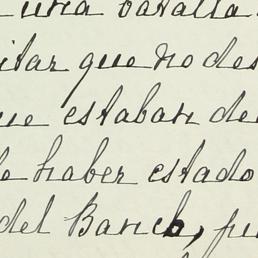 una batalla
itar que no des
ue estaban de
e haber estado
del Banco, pu